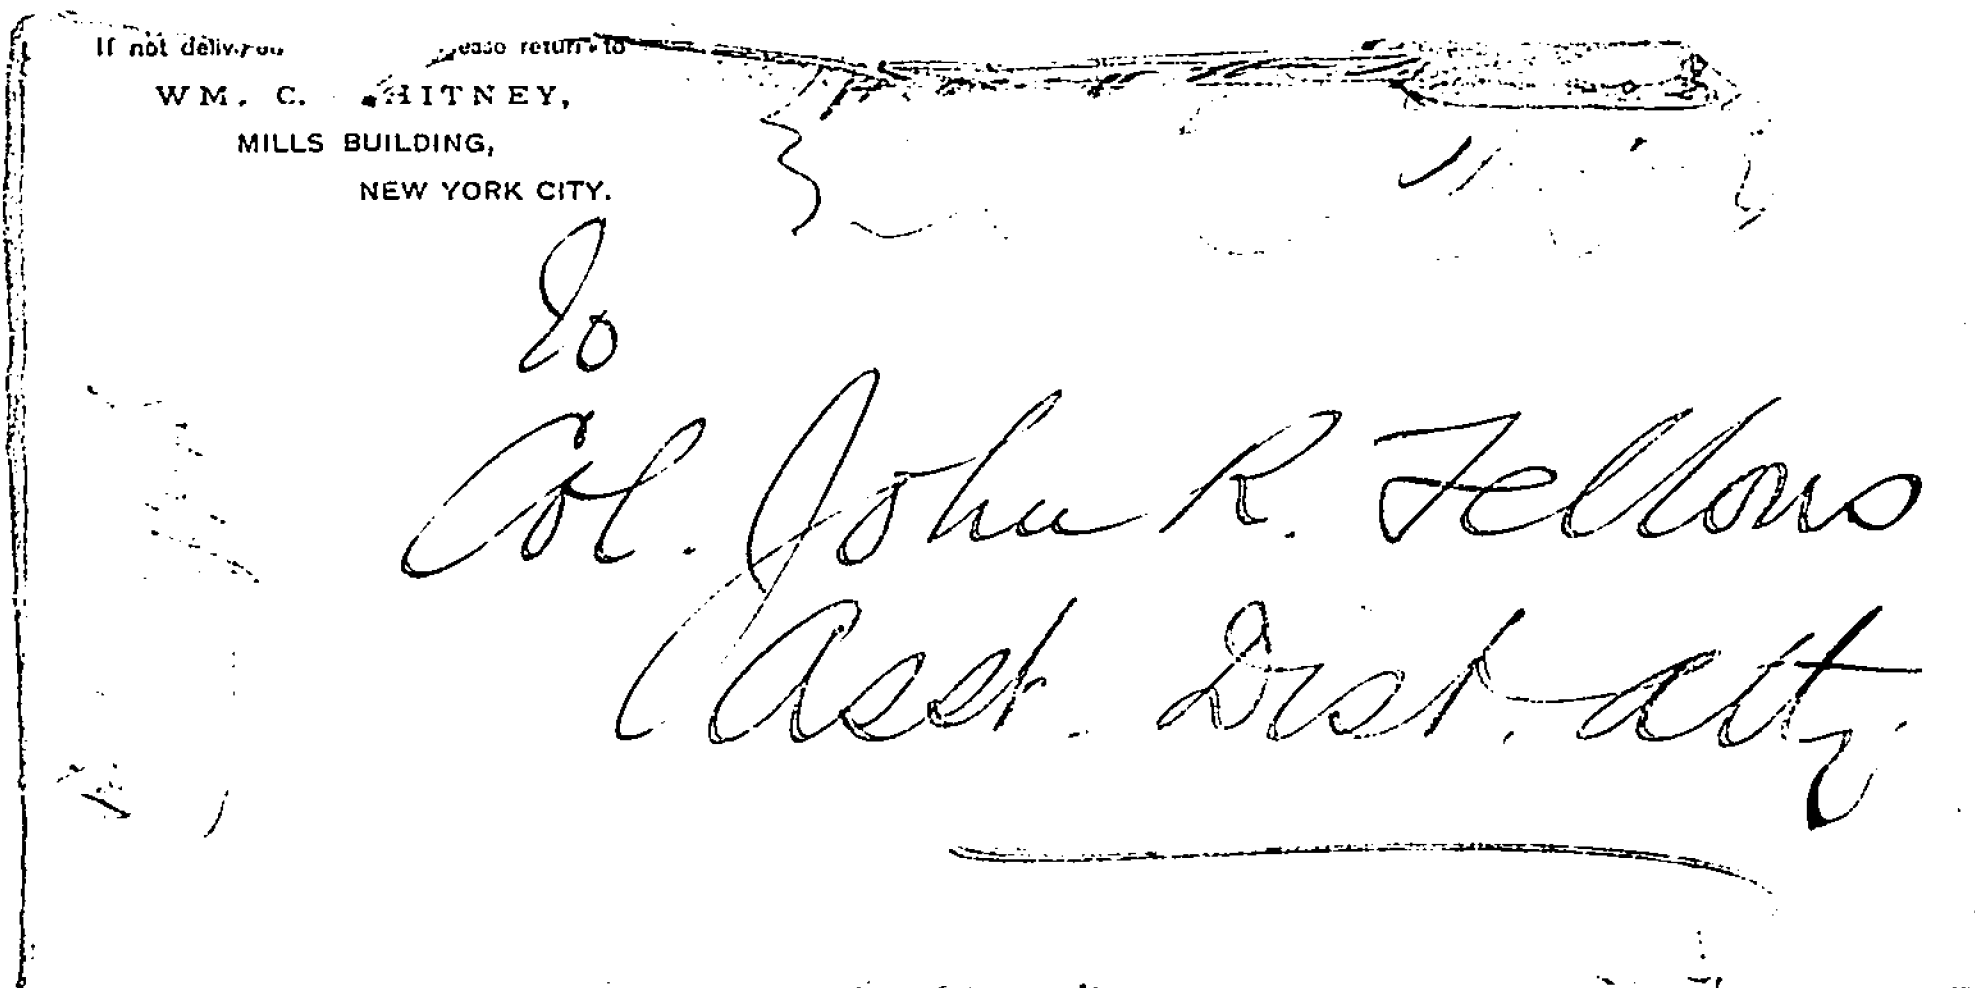 If not delivered please return to
WM. C. WHITNEY,
MILLS BUILDING,
NEW YORK CITY.
To
Col. John R. Fellows
Asst. Dist. Atty.